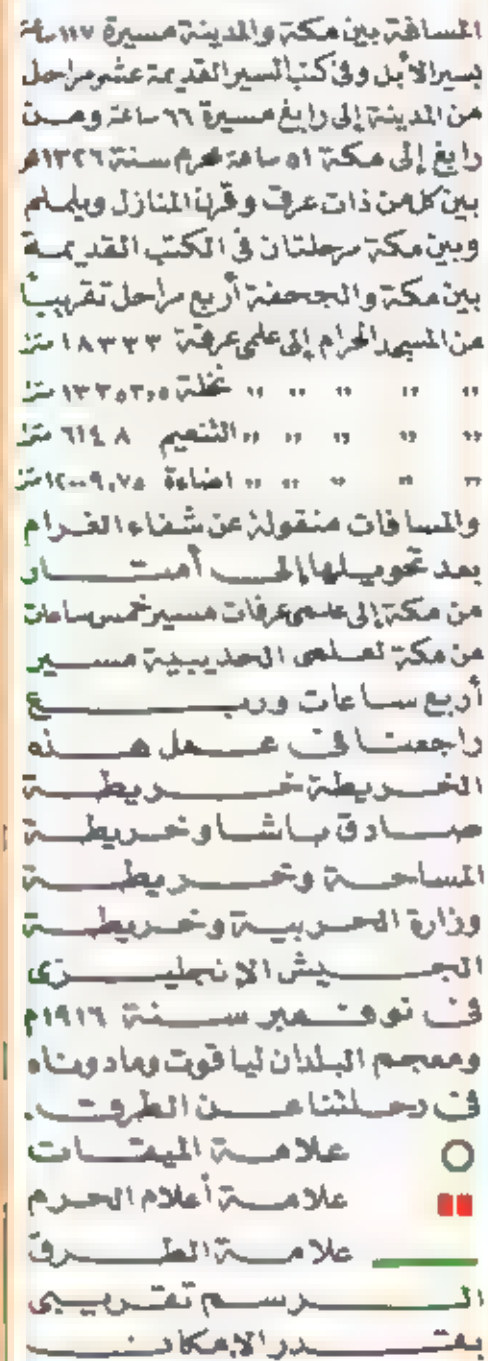 المسافة بين مكة والمدينة مسيرة ١١٧ ساعة
بسير الأبل وفى كتب السير القديمة عشر مراحل
من المدينة إلى رابغ مسيرة ٦٦ ساعة ومن
رابغ إلى مكة ٥١ ساعة محرم سنة ١٣٢٦هـ
بين كل من ذات عرق وقرن المنازل ويلملم
وبين مكة مرحلتان فى الكتب القديمة
بين مكة والجحفة أربع مراحل تقريباً
من المسجد الحرام إلى علمى عرفة ١٨٣٣٣ متر
" " " " " نخلة ١٣٣٥٣,٥ متر
" " " " " التنعيم ٦١٤٨ متر
" " " " " اضاءة ١٢٠٠٩,٧٥ متر
والمسافات منقولة عن شفاء الغرام
بعد تحويلها إلى أمتار
من مكة إلى علمى عرفات مسير خمس ساعات
من مكة لعلمى الحديبية مسير
أربع ساعات وربع
راجعنا فى عمل هذه
الخريطة خريطة
صادق باشا وخريطة
المساحة وخريطة
وزارة الحربية وخريطة
الجيش الإنجليزى
فى نوفمبر سنة ١٩١٦م
ومعجم البلدان لياقوت وما دوناه
فى رحلتنا عن الطرق.
علامة الميقات
علامة أعلام الحرم
علامة الطرق
الرسم تقريبى
بقدر الإمكان